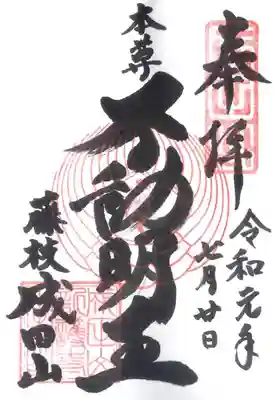 奉拝
令和元年
七月廿日
本尊
不動明王
藤枝成田山